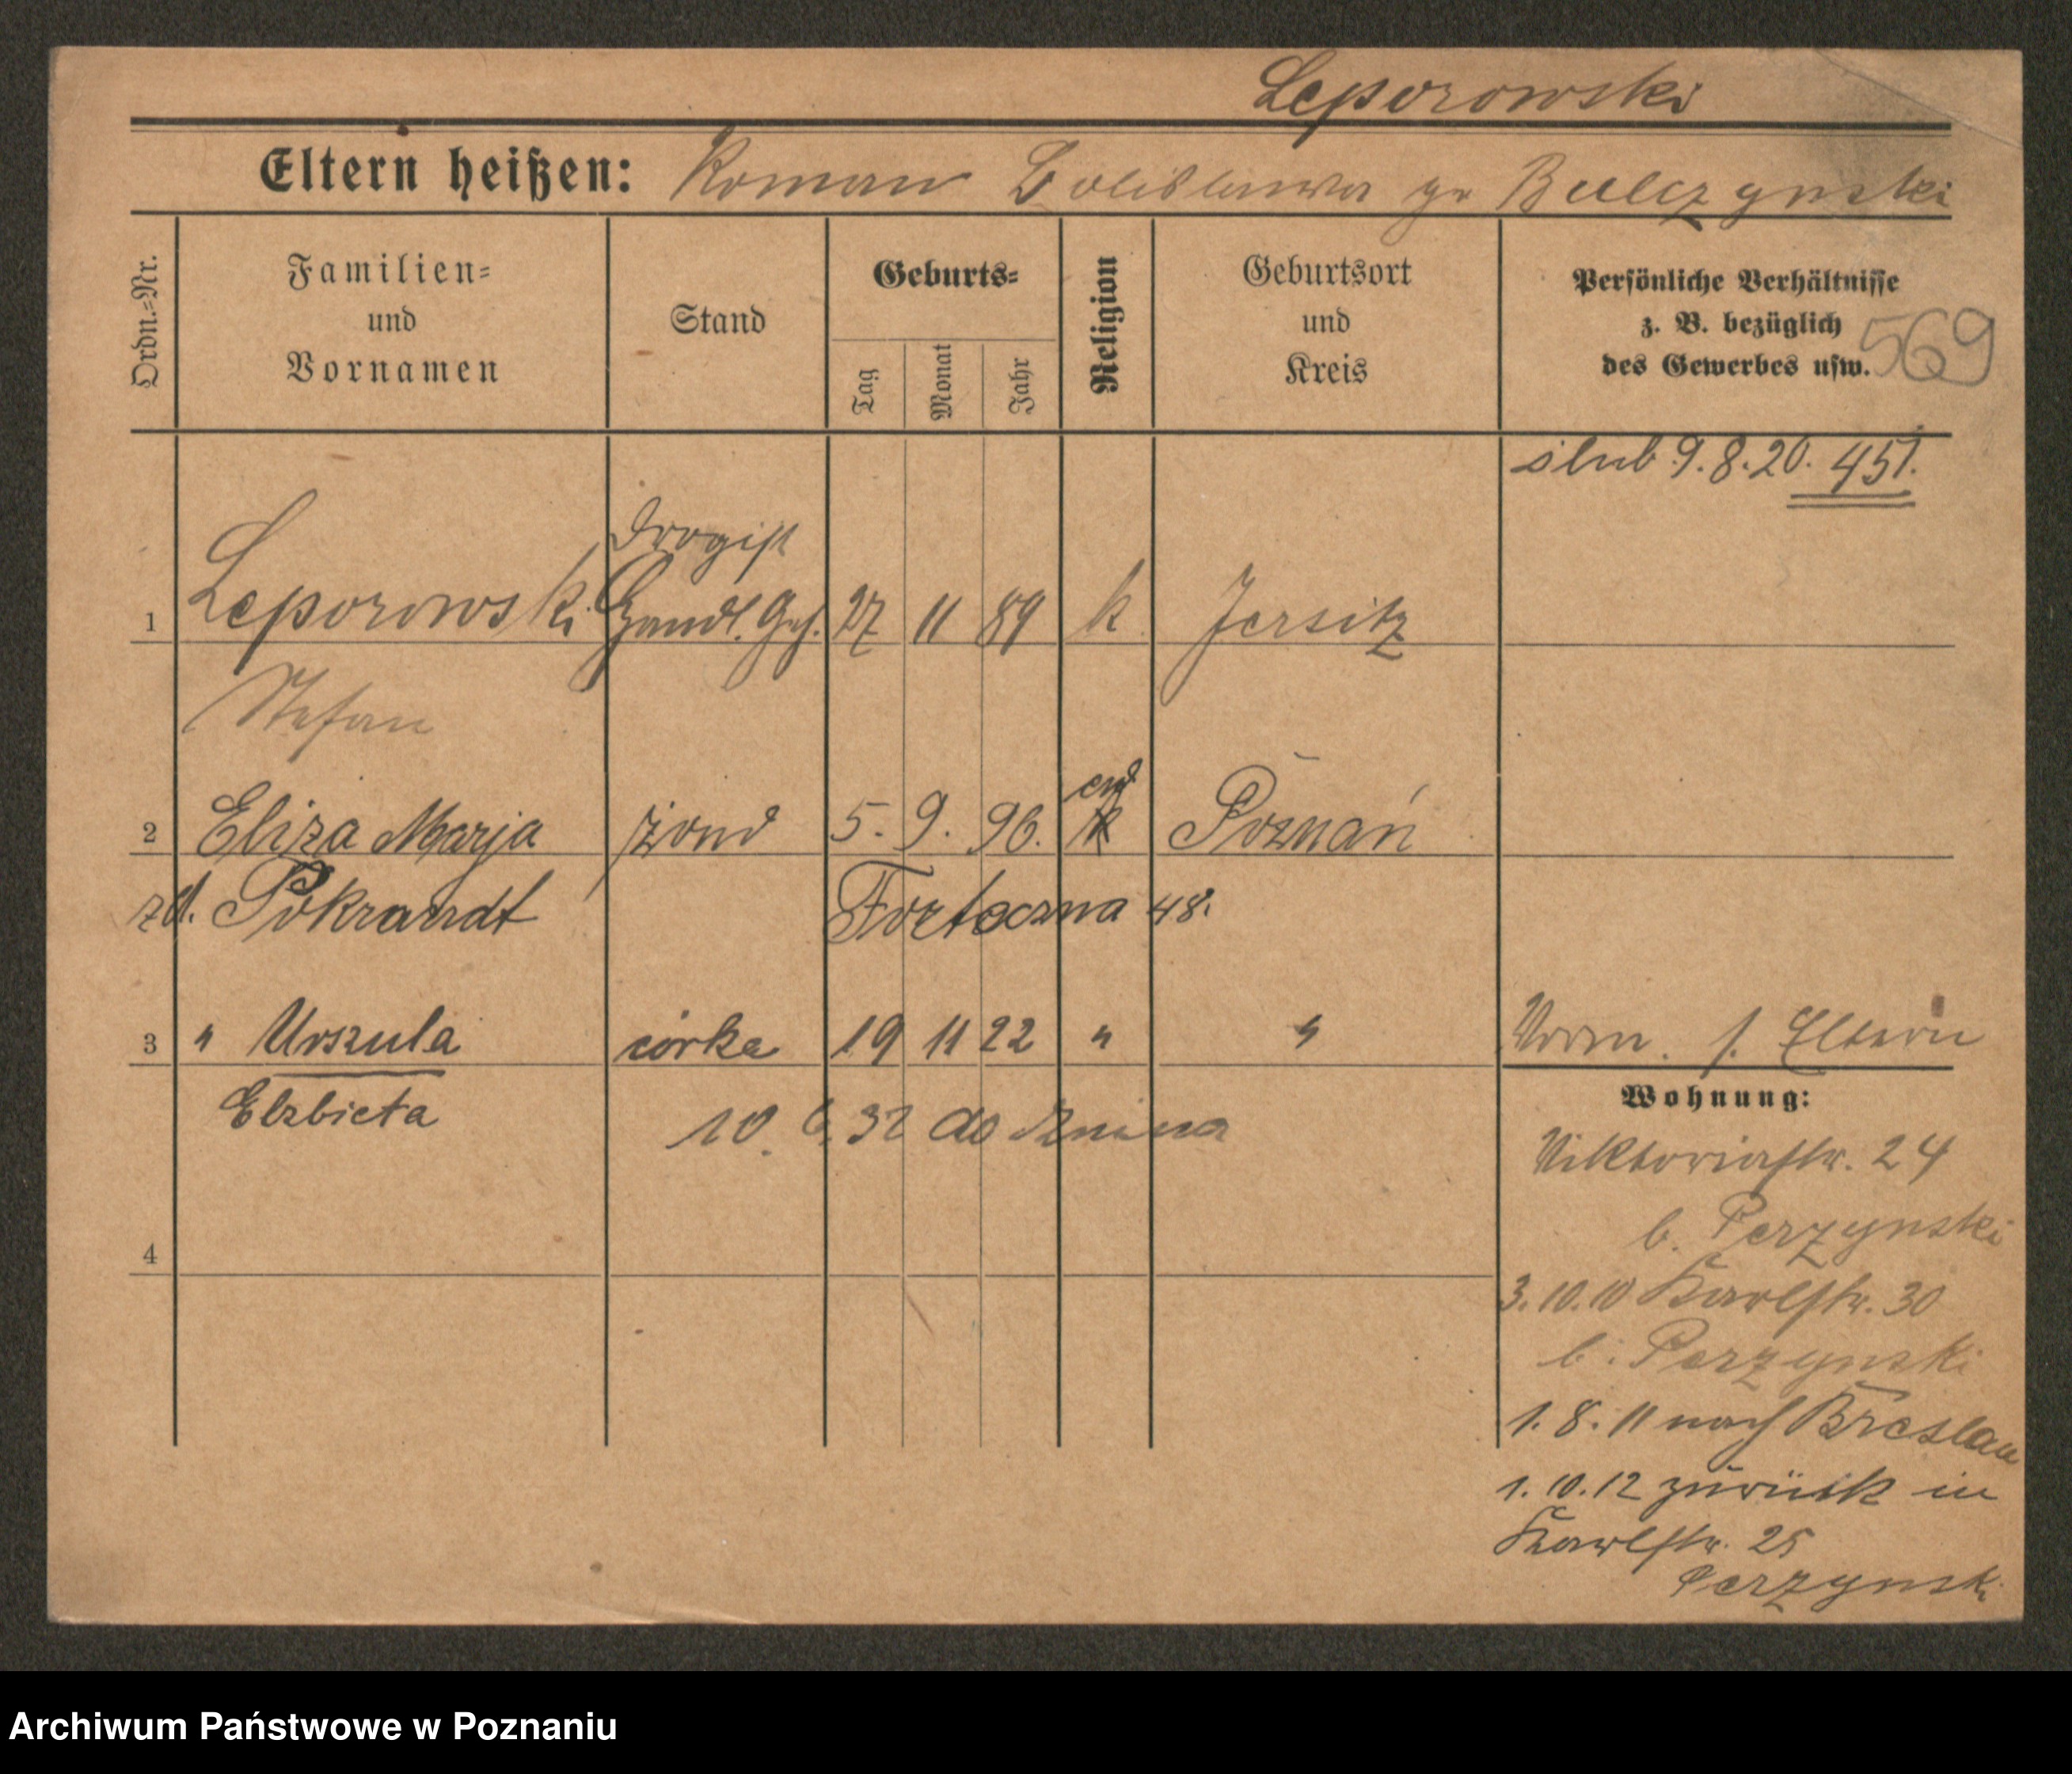 Leporowski
Eltern heißen: Roman Bolislawa gr Bulczynski
Ordn.=Nr.
Familien=
und
Vornamen
Stand
Geburts=
Tag
Monat
Jahr
Religion
Geburtsort
und
Kreis
Persönliche Verhältnisse
z. B. bezüglich
des Gewerbes usw.
569
ślub 9.8.20. 451.
Drogist
1 Leporowski Handl. Geh. 27 11 89 k Jersitz
Stefan
ewd
2 Eliza Marja żona 5. 9. 96. k Poznań
zd. Pokrandt Forteczna 48.
3 " Urszula córka 19 11 22 " " Vorm. s. Eltern
Elzbieta
10. 6. 32 do Żnina
4
Wohnung:
Viktoriastr. 24
b. Perzynski
3.10.10 Karlstr. 30
b. Perzynski
1.8.11 nach Breslau
1.10.12 zurück in
Karlstr. 25
Perzynski
Archiwum Państwowe w Poznaniu